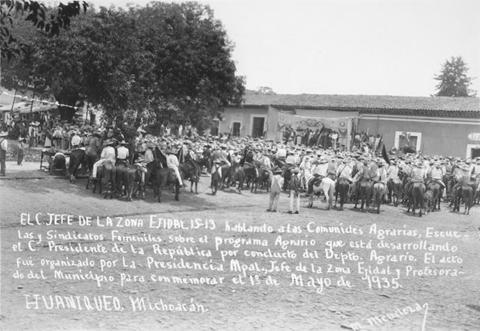 EL C. JEFE DE LA ZONA EJIDAL 15-13 hablando a las Comunides Agrarias, Escue
las y Sindicatos Femeniles sobre el programa Agrario que está desarrollando
el C. Presidente de la República por conducto del Depto. Agrario. El acto
fué organizado por La Presidencia Mpal, Jefe de la Zona Ejidal y Profesora-
do del Municipio para conmemorar el 1º de Mayo de 1935.
HUANIQUEO, Michoacán.
M. Mendoza